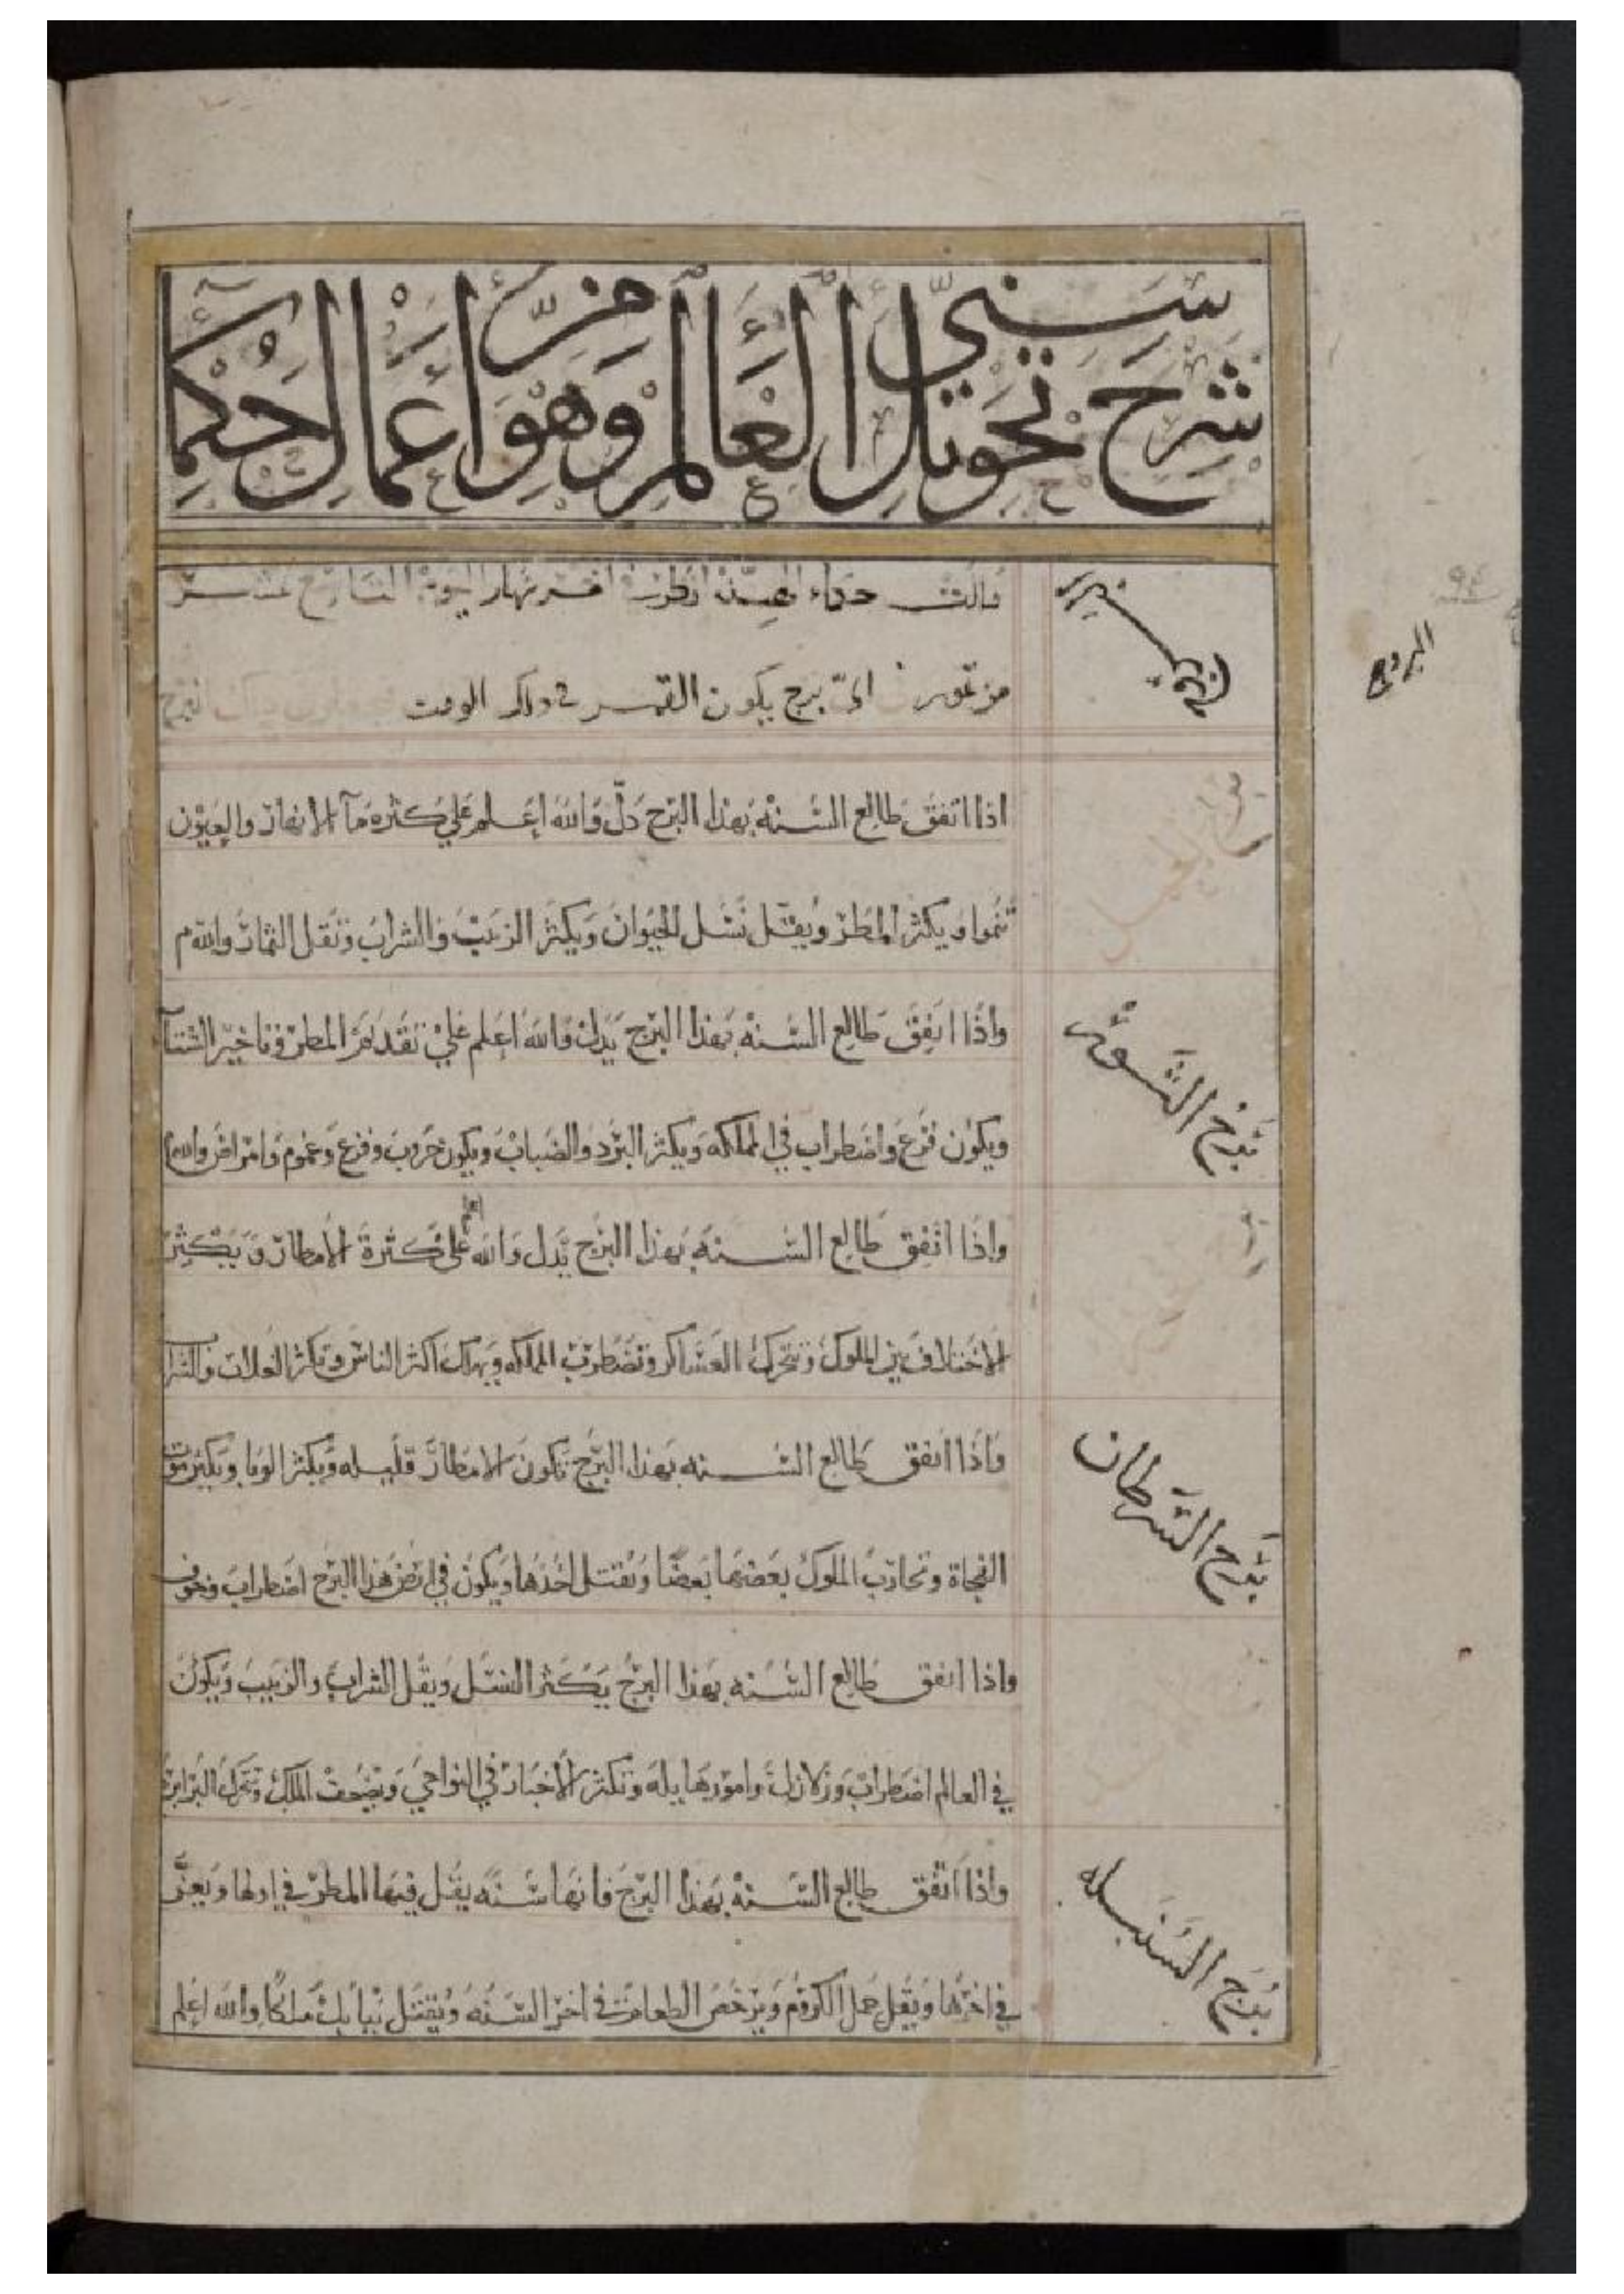 شرح تحويل سني العالم وهو من اعمال حكما
البروج
قالت حكماء
من تموز الىّ برج يكون القمر في ذلك الوقت
برج الحمل
اذا اتفق طالع السنة بهذا البرج دلّ والله اعلم علي كثرة مآ الانهار والعيون
تنموا ويكثر المطر ويقل نسل الحيوان ويكثر الزيت والشراب وتقل الثمار والله م
برج الثور
واذا اتفق طالع السنه بهذا البرج يدل والله اعلم علي تقدم المطر وتاخير الشتآ
ويكون فزع واضطراب في المملكه ويكثر البرد والضباب ويكون حروب وفزع وغموم وامراض والله
واذا اتفق طالع السنه بهذا البرج يدل والله اعلم علي كثرة الأمطار ويكثر
الاختلاف بين الملوك وتتحرك العساكر وتضطرب المملكه ويهلك اكثر الناس وتكثر الغلات
برج السرطان
واذا اتفق طالع السنه بهذا البرج تكون الامطار قليله ويكثر الوبا ويكثر موت
الفجاة وتحارب الملوك بعضها بعضا ويقتتل احدها ويكون في ارض هذا البرج اضطراب وخوف
واذا اتفق طالع السنه بهذا البرج يكثر النسل ويقل الشراب والزبيب ويكون
في العالم اضطراب وزلازل وامور هايله وتكثر الأخبار في النواحي ويضعف الملك وتتحرك البرابر
برج السنبله
واذا اتفق طالع السنة بهذا البرج فانها سنه يقل فيها المطر في اولها
في اخرها ويقل حمل الكروم ويرخص الطعام في اخر السنه ويقتل ببابل ملكا والله اعلم